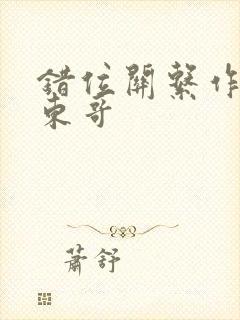 錯位關繫作
東哥
蕭舒